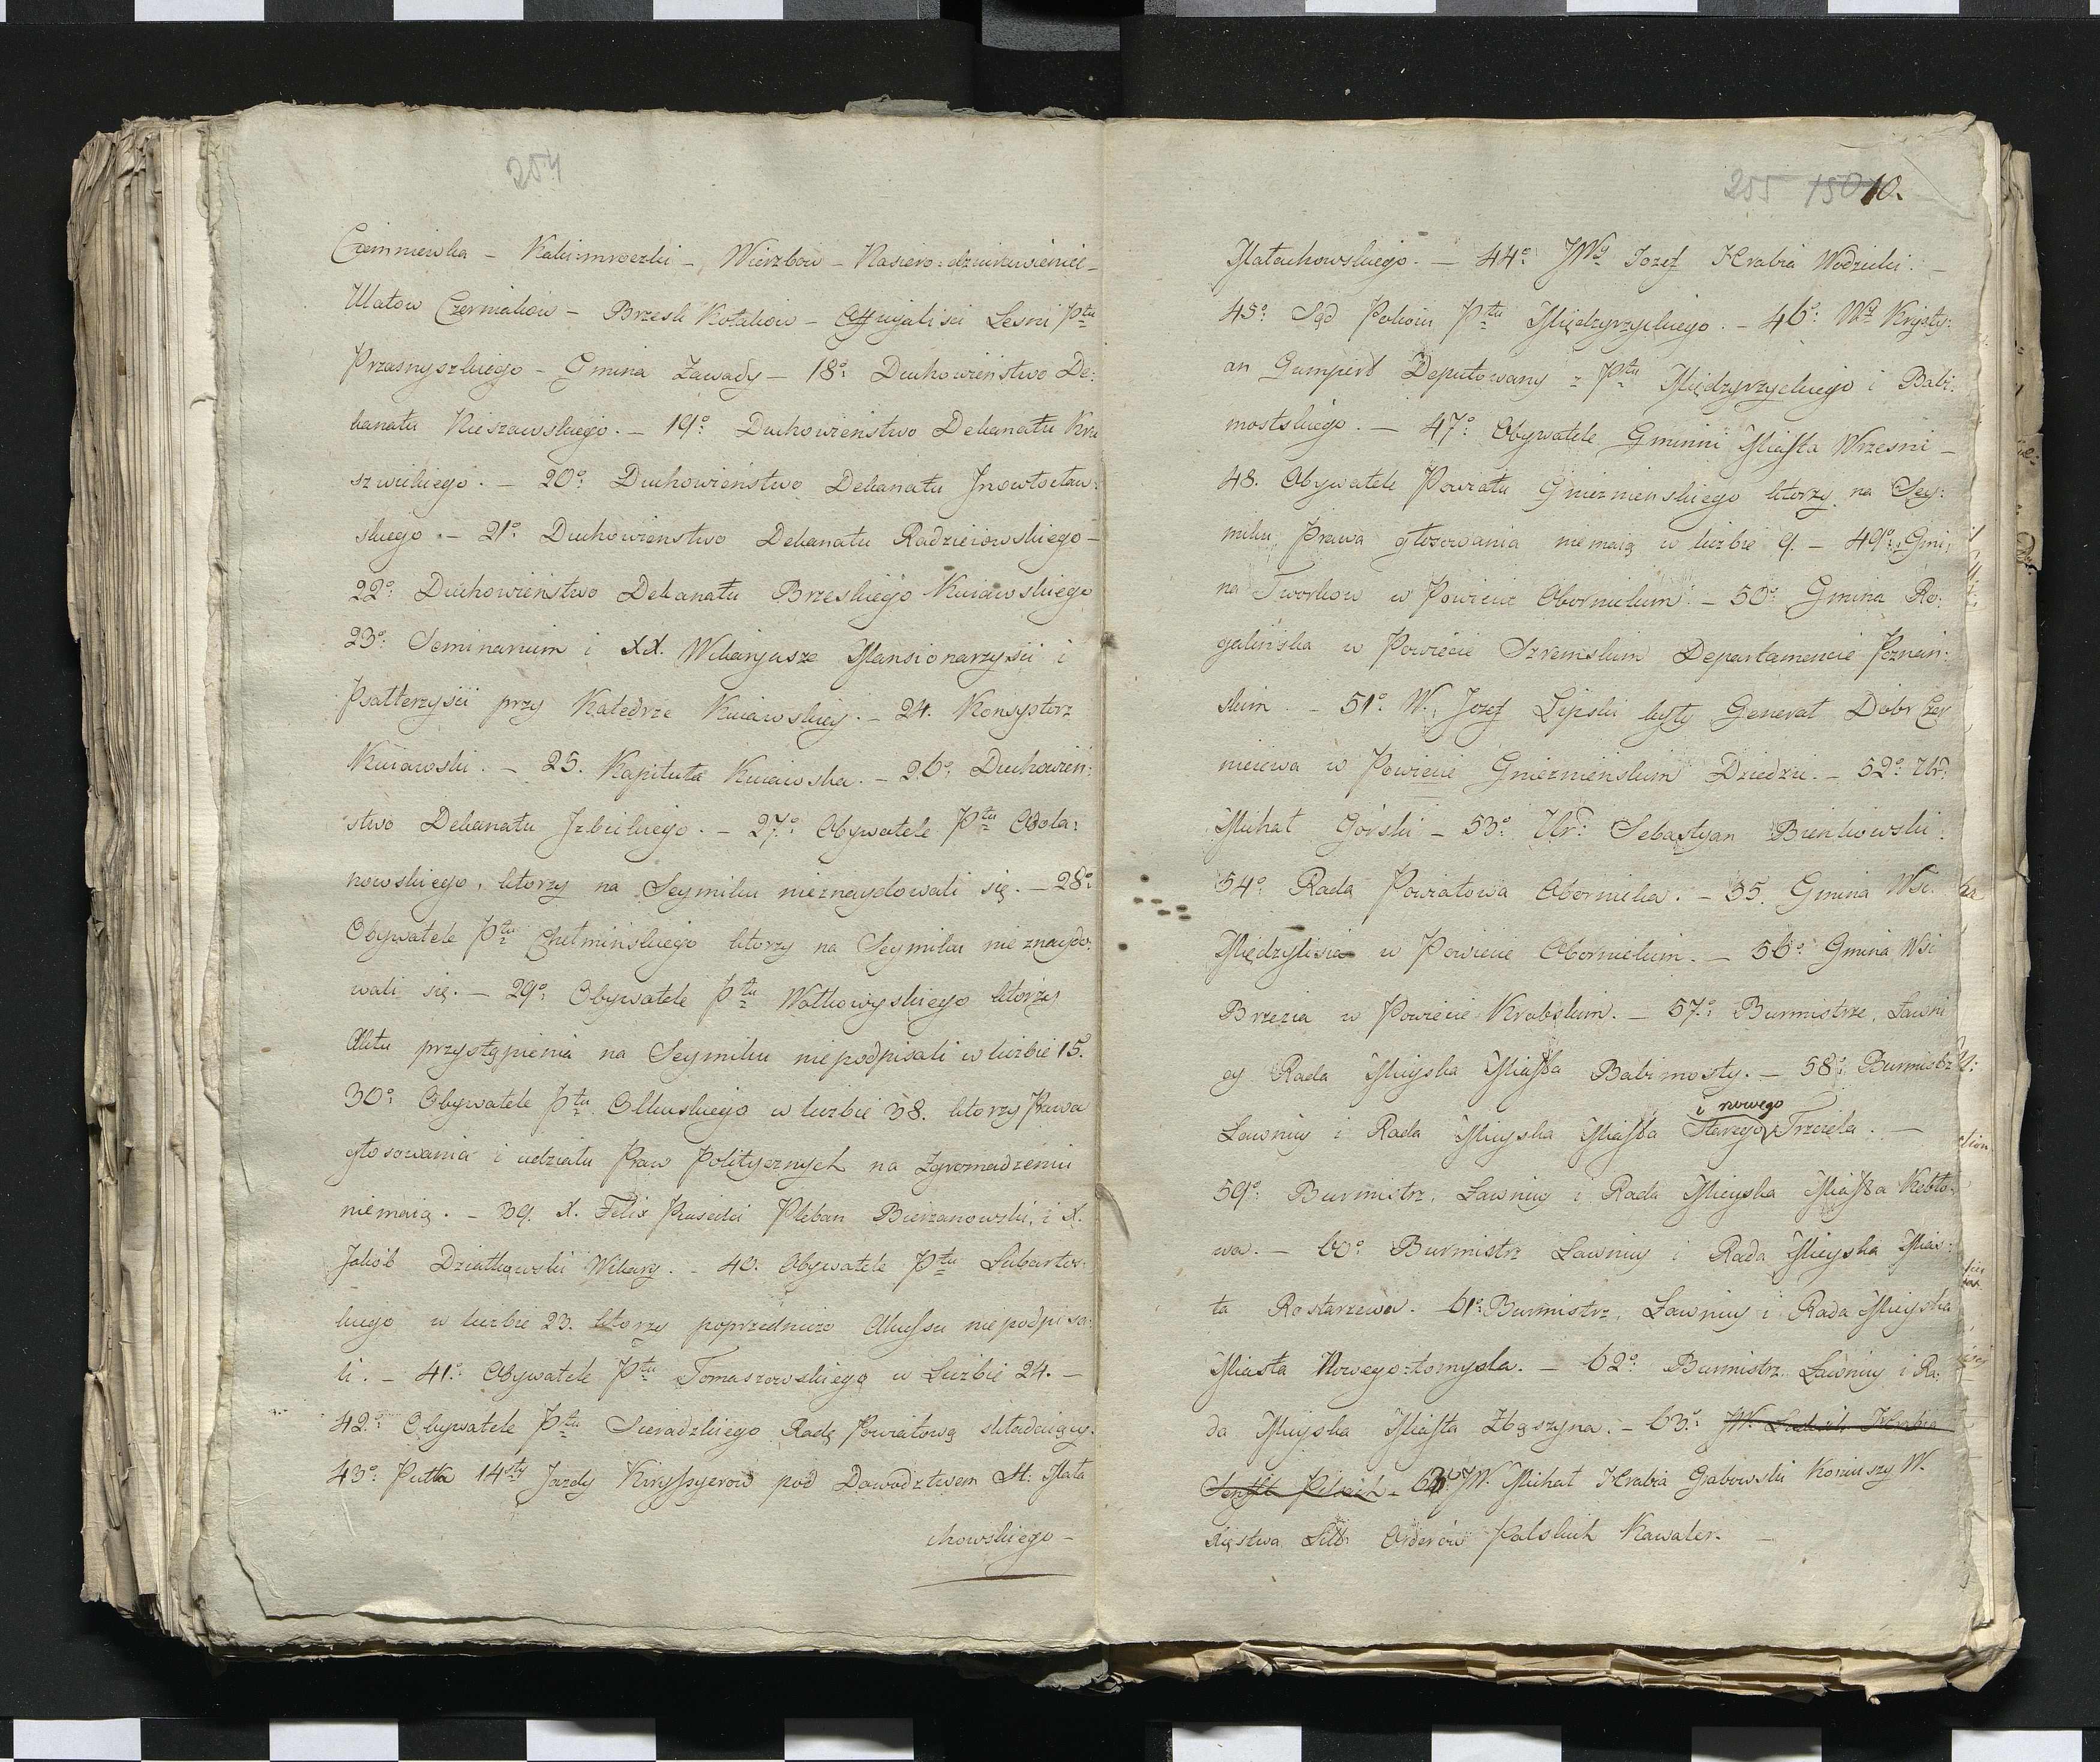 254
Czerniewka - Kazimroczki - Wierzbow - Nasiero:dziurawieniec -
Ulatow Czerniakow - Brzeski Kołakow - Officjalisci Lesni Ptu
Przasnyszkiego - Gmina Zawady - 18o: Duchowieństwo De:
kanatu Nieszawskiego. - 19o: Duchowieństwo Dekanatu Kru
szwickiego. - 20o: Duchowieństwo Dekanatu Jnowłocław:
skiego. - 21o: Duchowieństwo Dekanatu Radzieiowskiego -
22o: Duchowieństwo Dekanatu Brzeskiego Kuiawskiego
23o: Seminarium i XX. Wikarjusze Mansionarzyści i
Psałterzyści przy Katedrze Kuiawskiey. - 24. Konsystorz
Kuiawski. - 25. Kapituła Kuiawska. - 26o: Duchowień:
stwo Dekanatu Jzbickiego. - 27o: Obywatele Ptu Odola:
nowskiego, ktorzy na Seymiku nieznaydowali się. - 28o:
Obywatele Ptu Chełmińskiego ktorzy na Seymiku nie znaydo:
wali się. - 29o: Obywatele Ptu Wołkowyskiego ktorzy
Aktu przystąpienia na Seymiku niepodpisali w liczbie 15.
30o: Obywatele Ptu Olkuskiego w liczbie 38. ktorzy Prawa
głosowania i udziału Praw Politycznych na Zgromadzeniu
niemaią. - 39. X. Felix Piasecki Pleban Bierzanowski, i X.
Jakób Działkowski Wikary. - 40. Obywatele Ptu Lubartow:
kiego w liczbie 23. ktorzy poprzedniczo Akcessu niepodpisa:
li. - 41o: Obywatele Ptu Tomaszowskiego w Liczbie 24. -
42o: Obywatele Ptu Sieradzkiego Radę Powiatową składaiący.
43o: Pułk 14sty Jazdy Kiryssyerow pod Dowodztwem St: Mała
chowskiego -
255 150 10.
Małachowskiego. - 44o: JWy Jozef Hrabia Wodzicki. -
45o: Sąd Pokoiu Ptu Międzyrzyckiego. - 46o: Wy Krysty:
an Gumpert Deputowany z Ptu Międzyrzyckiego i Babi:
mostskiego. - 47o: Obywatele Gminni Miasta Wrzesni -
48. Obywatele Powiatu Gnieznienskiego ktorzy na Sey:
miku Prawa głosowania niemaią w liczbie 9. - 49o: Gmi:
na Tworkow w Powiecie Obornickim. - 50o: Gmina Ro:
galińska w Powiecie Szremskim Departamencie Poznań:
skim. - 51o: W. Jozef Lipski były Generał Dobr Czer
nieiewa w Powiecie Gnieznienskim Dziedzic. - 52o: Ur:
Michał Górski - 53o: Ur: Sebastyan Bienkowski.
54o: Rada Powiatowa Obornicka. - 55. Gmina Wsi
Międzylisie w Powiecie Obornickim. - 56o: Gmina Wsi
Brzezia w Powiecie Krobskim. - 57o: Burmistrz, Ławni
cy Rada Mieyska Miasta Babimosty. - 58o: Burmistrz
Ławnicy i Rada Mieyska Miasta Starego i nowego Trzciela. -
59o: Burmistrz, Ławnicy i Rada Mieyska Miasta Kebło:
wa. - 60o: Burmistrz Ławnicy i Rada Mieyska Mias:
ta Rostarzewa. 61o: Burmistrz, Ławnicy i Rada Mieyska
Miasta Nowego:tomysla. - 62o: Burmistrz. Ławnicy i Ra:
da Mieyska Miasta Zbąszyna. - 63o: JW. Ludwik Hrabia
Senfft Pilsach - 63o: JW. Michał Hrabia Grabowski Koniuszy W.
Xięstwa Litt: Orderów Polskich Kawaler. -